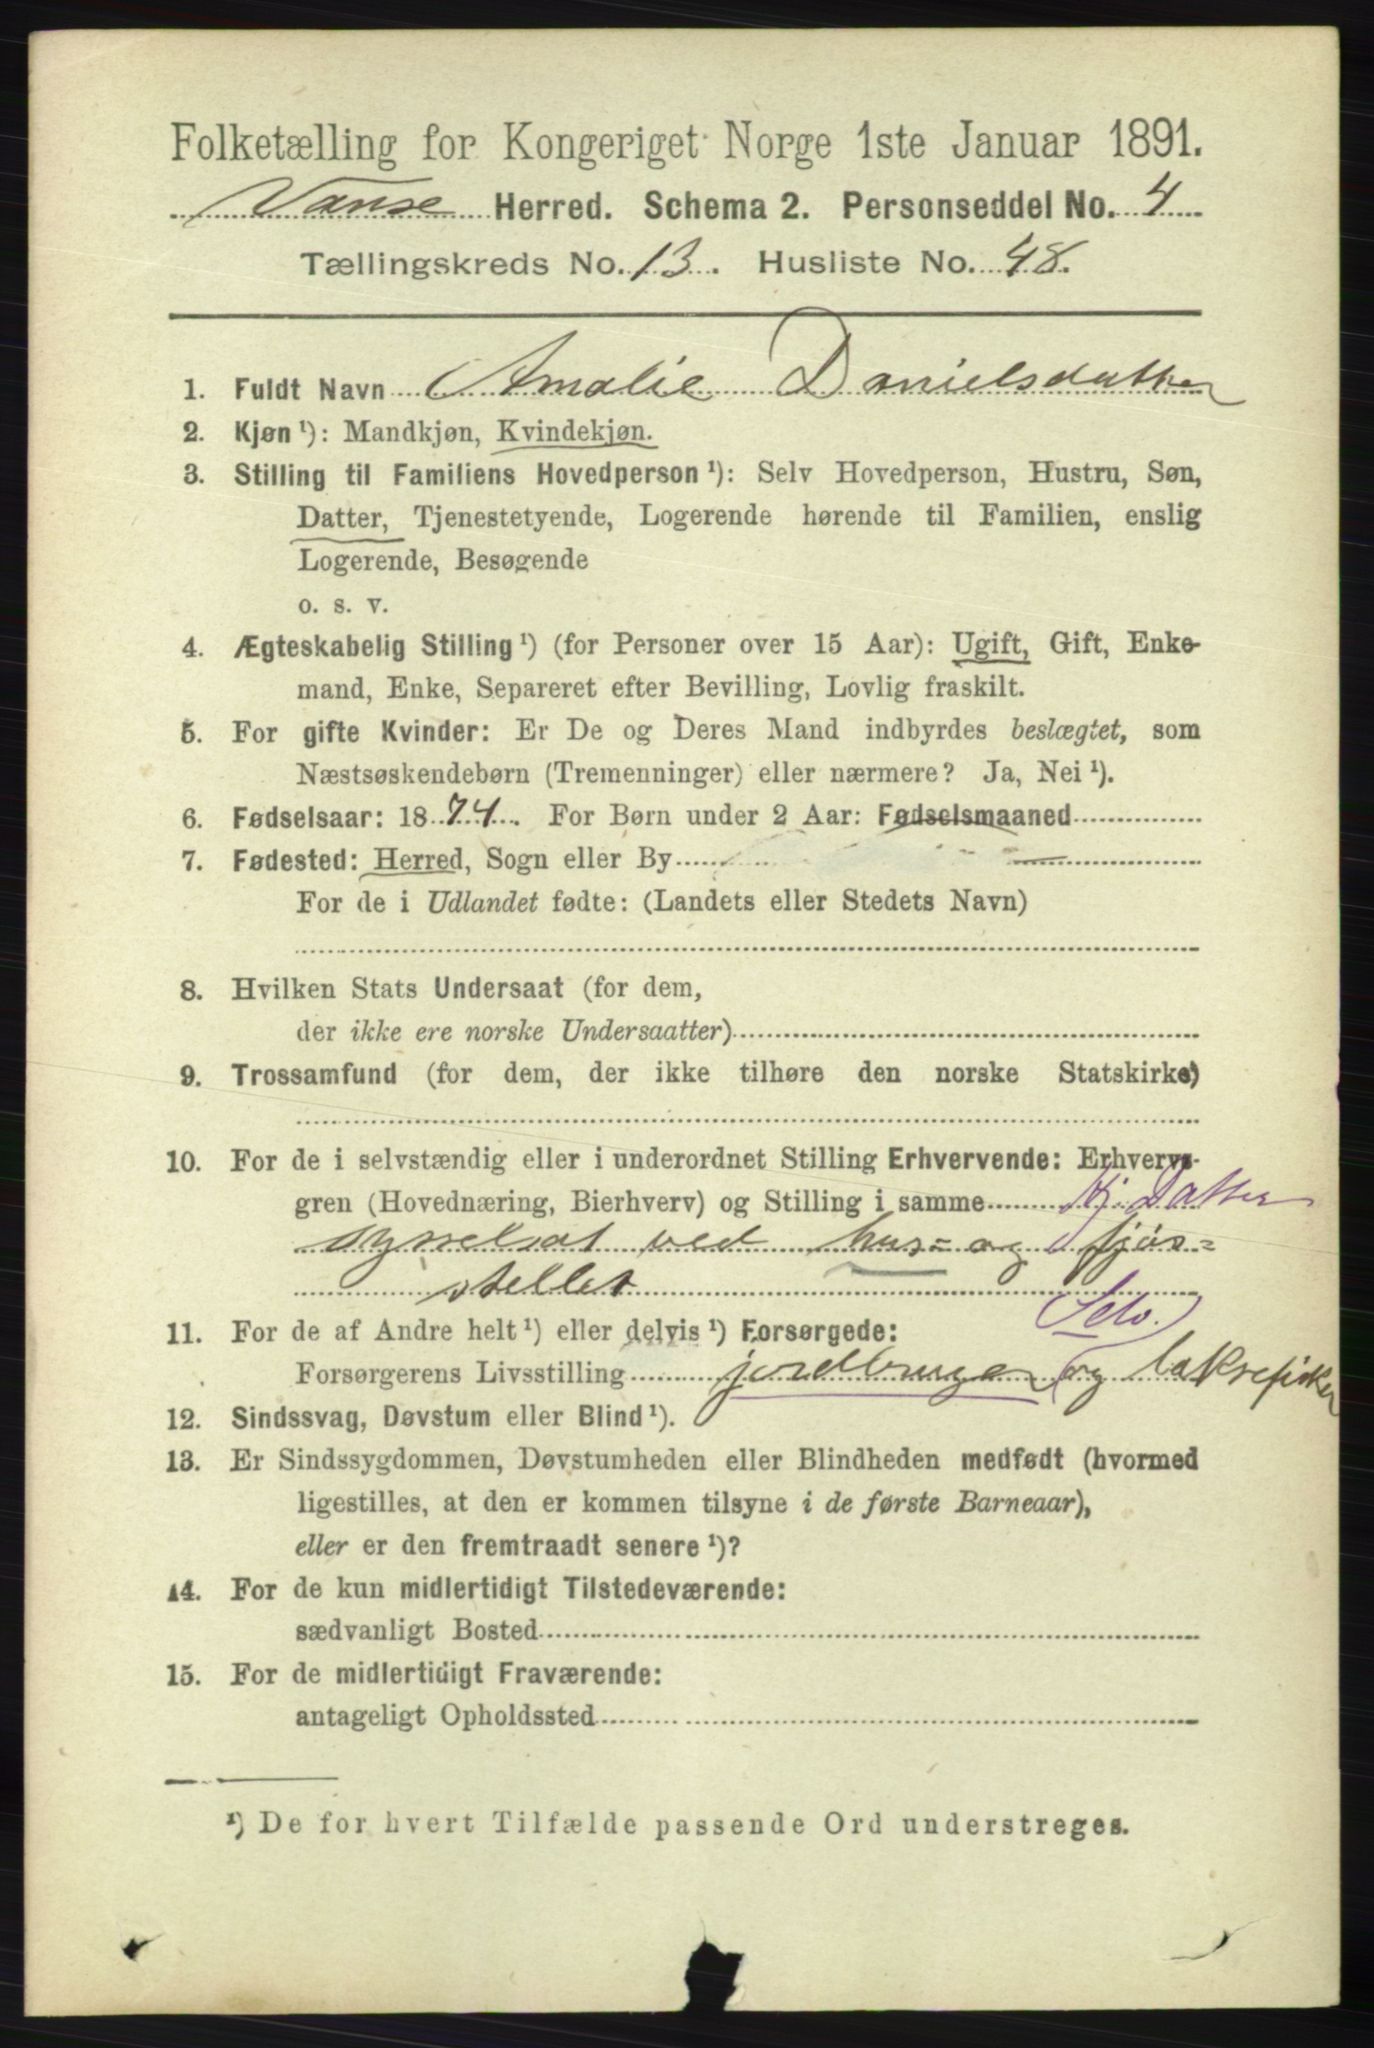 Folketælling for Kongeriget Norge 1ste Januar 1891.
Vanse Herred. Schema 2. Personseddel No. 4
Tællingskreds No. 13. Husliste No. 48.
1. Fuldt Navn Amalie Danielsdatter
2. Kjøn ¹): Mandkjøn, Kvindekjøn.
3. Stilling til Familiens Hovedperson ¹): Selv Hovedperson, Hustru, Søn,
Datter, Tjenestetyende, Logerende hørende til Familien, enslig
Logerende, Besøgende
o. s. v.
4. Ægteskabelig Stilling ¹) (for Personer over 15 Aar): Ugift, Gift, Enke-
mand, Enke, Separeret efter Bevilling, Lovlig fraskilt.
5. For gifte Kvinder: Er De og Deres Mand indbyrdes beslægtet, som
Næstsøskendebørn (Tremenninger) eller nærmere? Ja, Nei ¹).
6. Fødselsaar: 1874. For Børn under 2 Aar: Fødselsmaaned
7. Fødested: Herred, Sogn eller By
For de i Udlandet fødte: (Landets eller Stedets Navn)
8. Hvilken Stats Undersaat (for dem,
der ikke ere norske Undersaatter)
9. Trossamfund (for dem, der ikke tilhøre den norske Statskirke)
10. For de i selvstændig eller i underordnet Stilling Erhvervende: Erhvervs-
gren (Hovednæring, Bierhverv) og Stilling i samme Hj. Datter
sysselsat ved hus- og fjøs-
stellet
11. For de af Andre helt ¹) eller delvis ¹) Forsørgede: Selv.
Forsørgerens Livsstilling jordbruger og laksefisker
12. Sindssvag, Døvstum eller Blind ¹).
13. Er Sindssygdommen, Døvstumheden eller Blindheden medfødt (hvormed
ligestilles, at den er kommen tilsyne i de første Barneaar),
eller er den fremtraadt senere ¹)?
14. For de kun midlertidigt Tilstedeværende:
sædvanligt Bosted
15. For de midlertidigt Fraværende:
antageligt Opholdssted
¹) De for hvert Tilfælde passende Ord understreges.